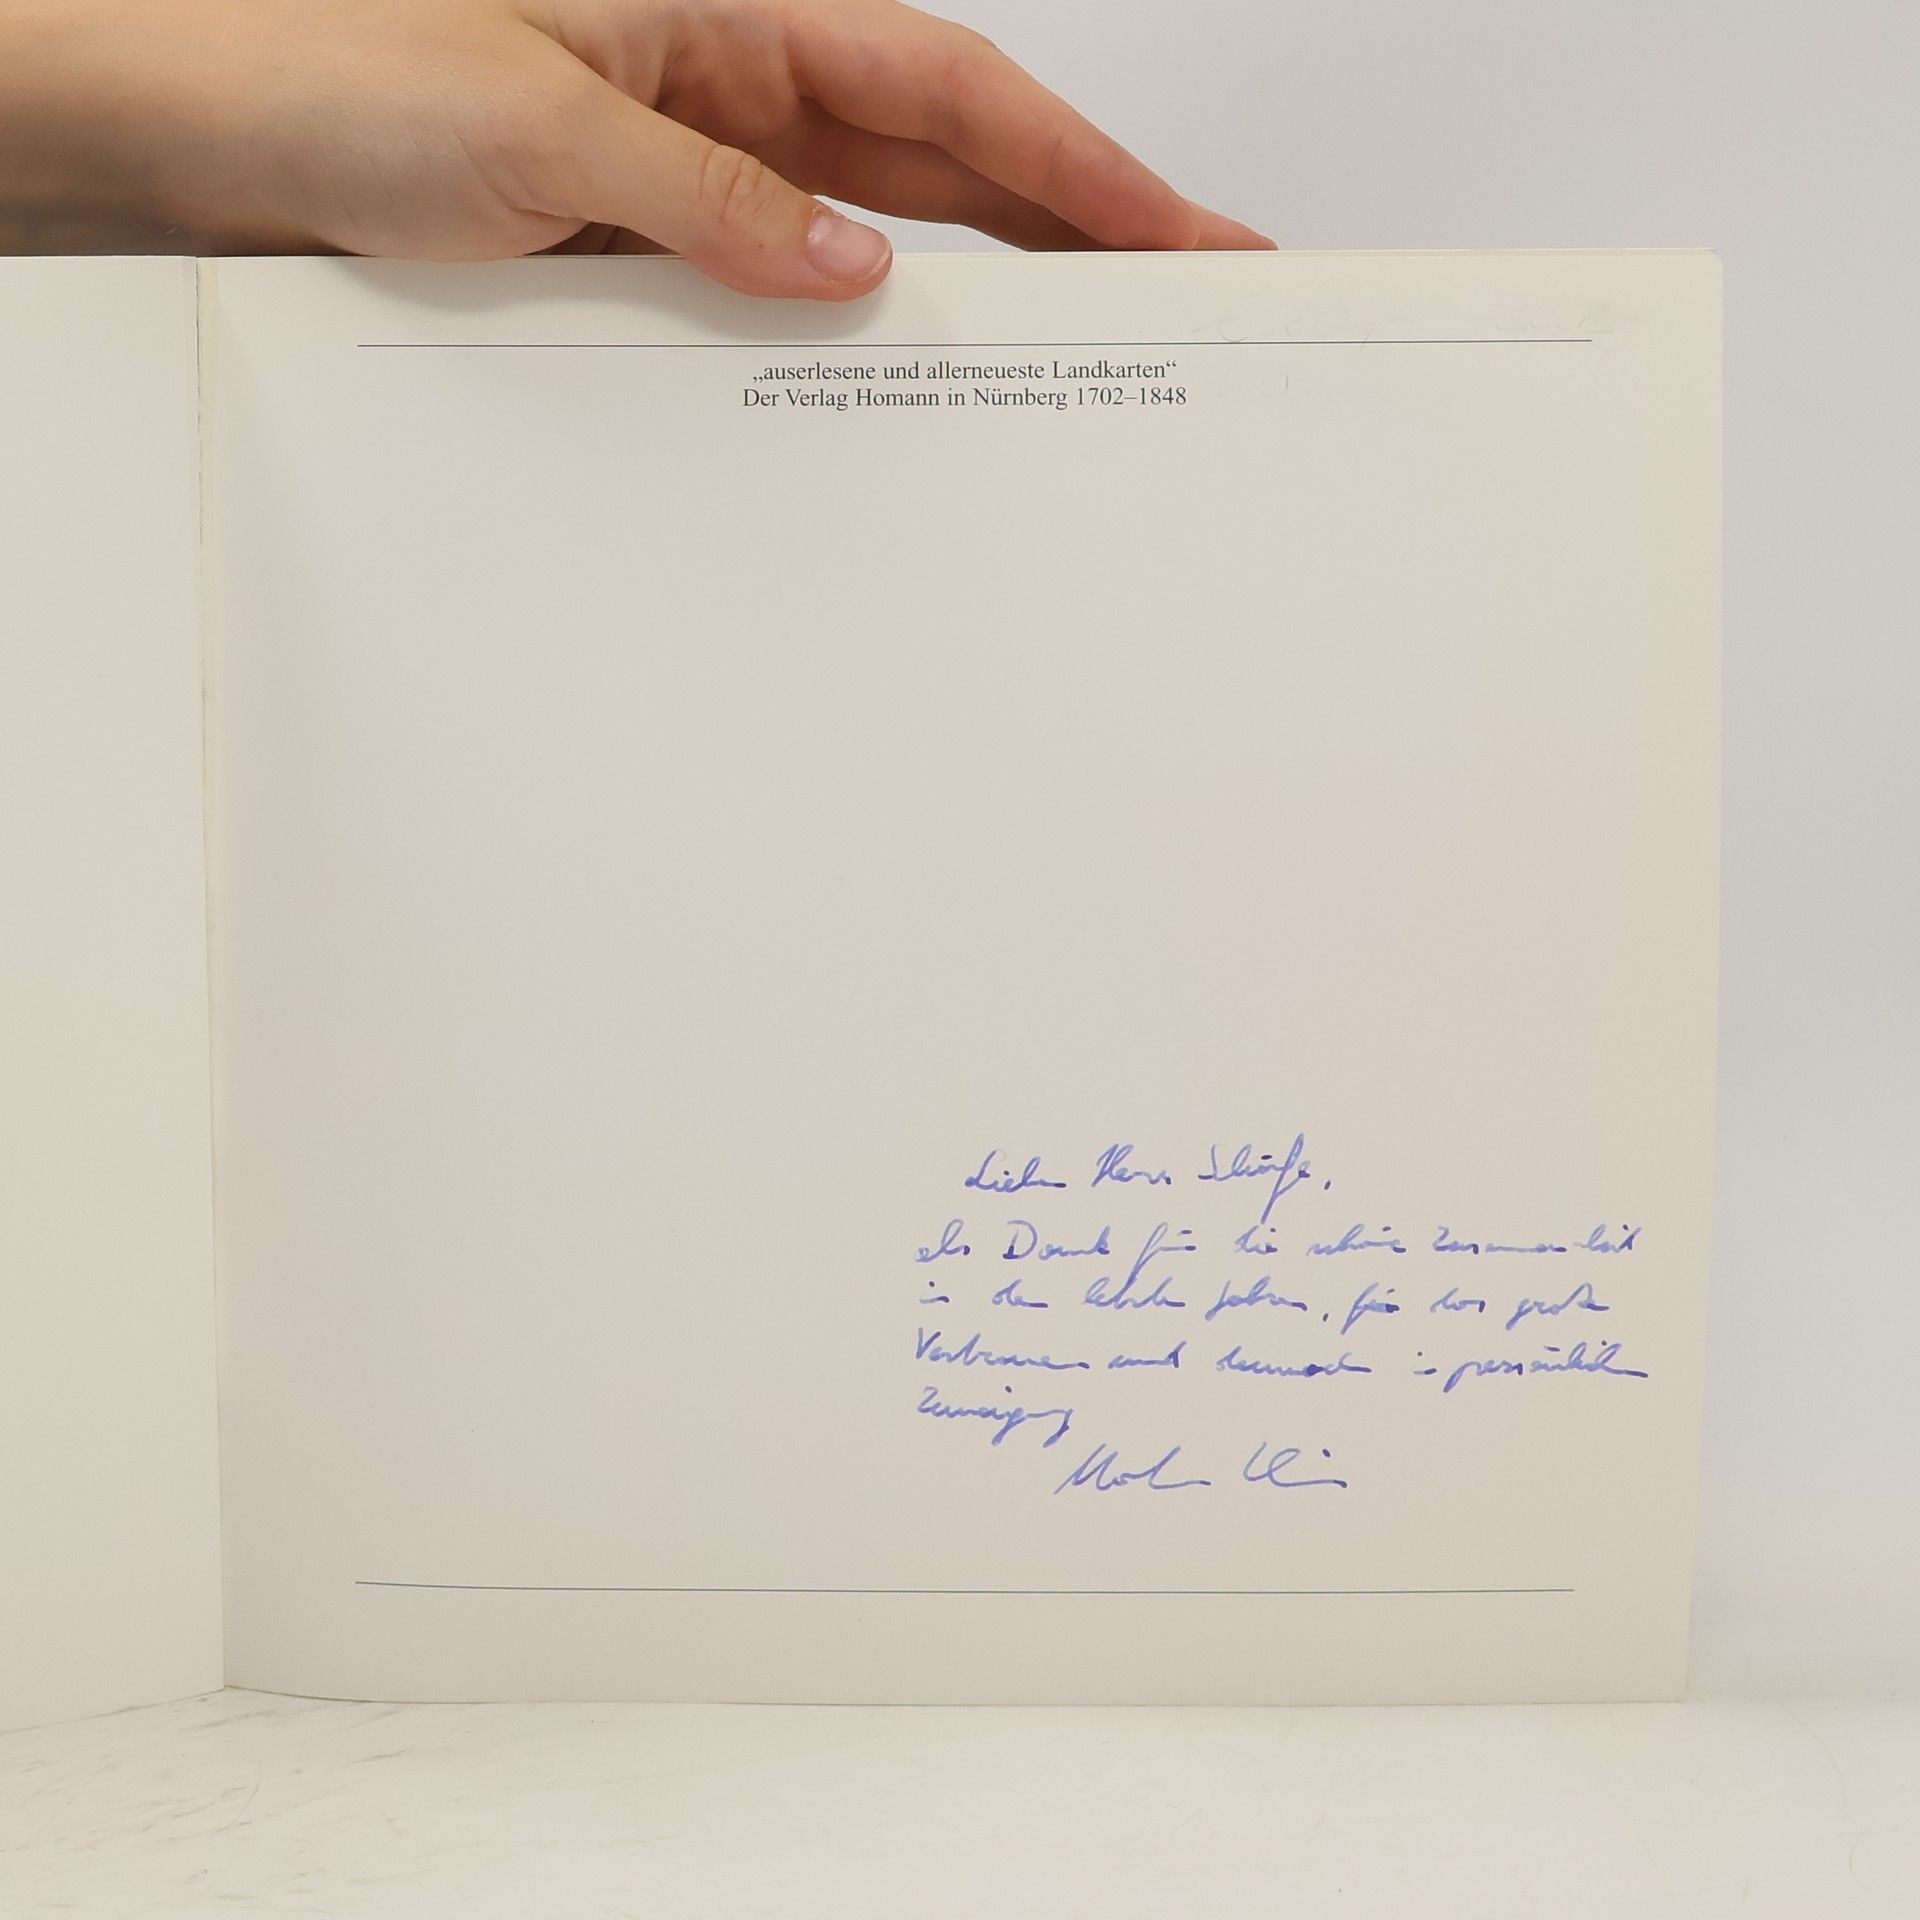 „auserlesene und allerneueste Landkarten“
Der Verlag Homann in Nürnberg 1702–1848
Lieber Herr Schärfe,
als Dank für die schöne Zusammenarbeit
in den letzten Jahren, für das große
Vertrauen und dennoch in persönlicher
Zuneigung